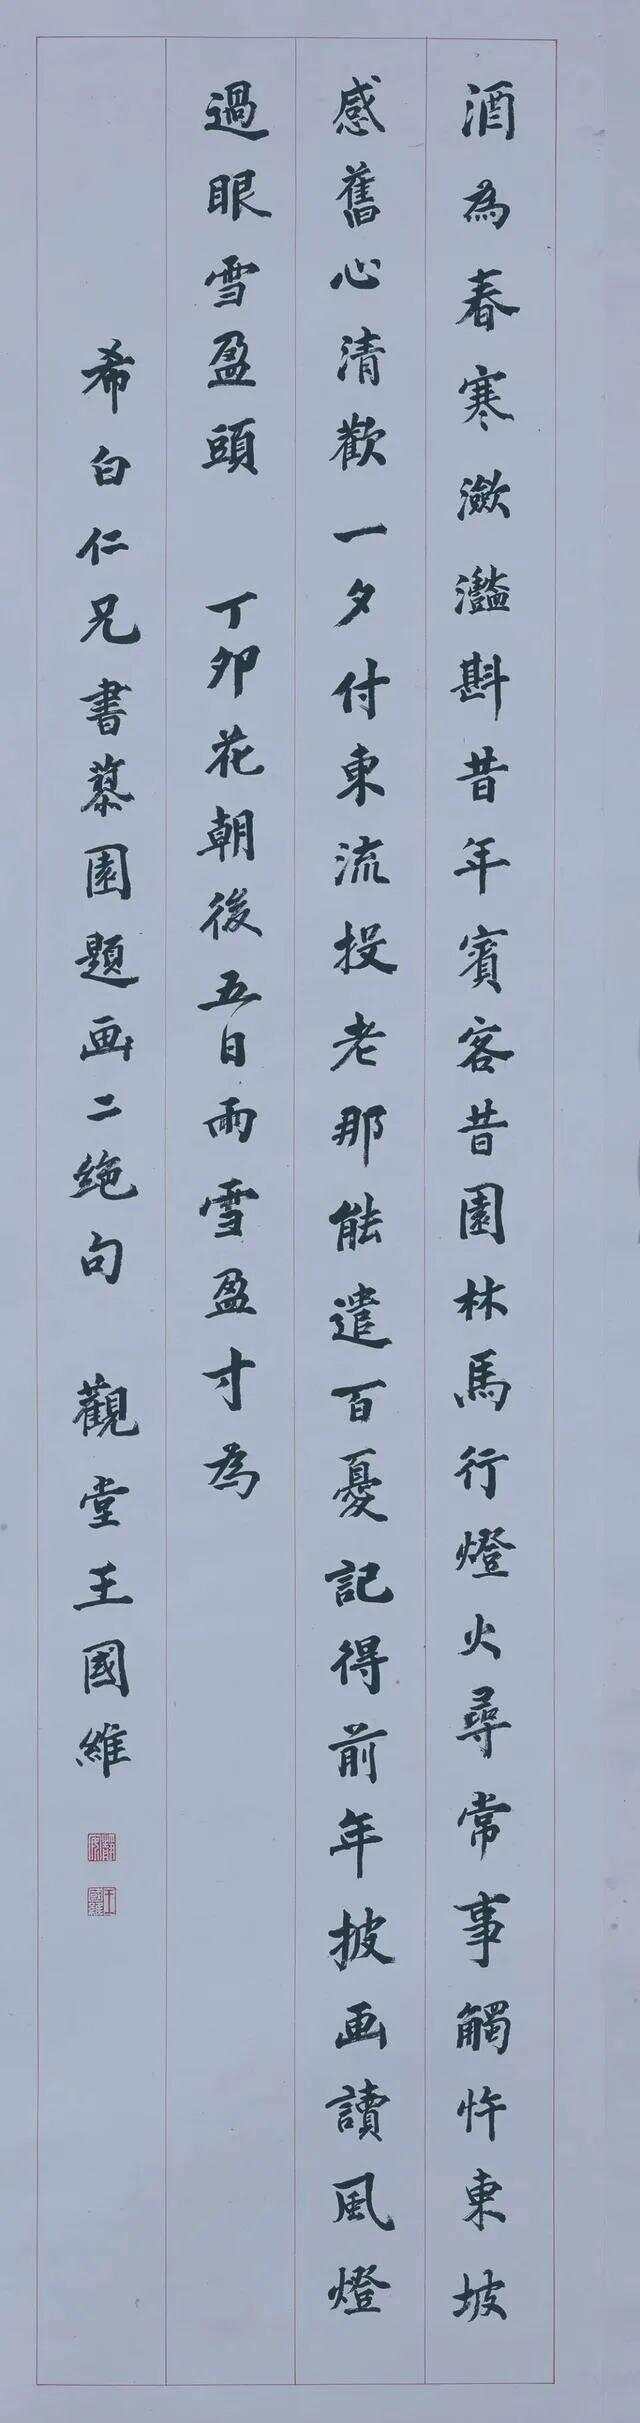 酒為春寒潋灩斟昔年賓客昔園林馬行燈火尋常事觸忤東坡
感舊心清歡一夕付東流投老那能遣百憂記得前年披画讀風燈
過眼雪盈頭 丁卯花朝後五日雨雪盈寸為
希白仁兄書慕園題画二絶句 觀堂王國維
王國維